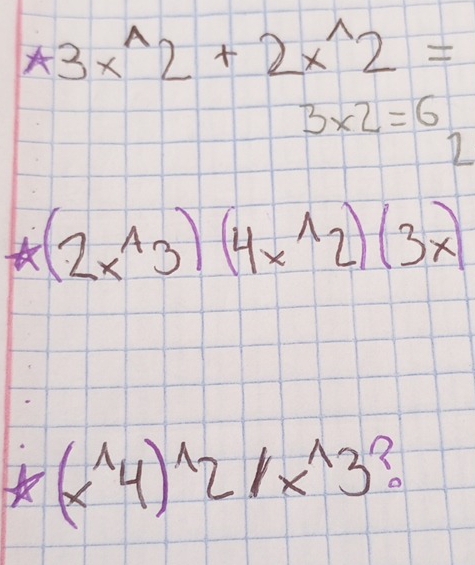 ★3x^2 + 2x^2 =
3x2=6
2
★(2x^3)(4x^2)(3x)
★(x^4)^2/x^3?